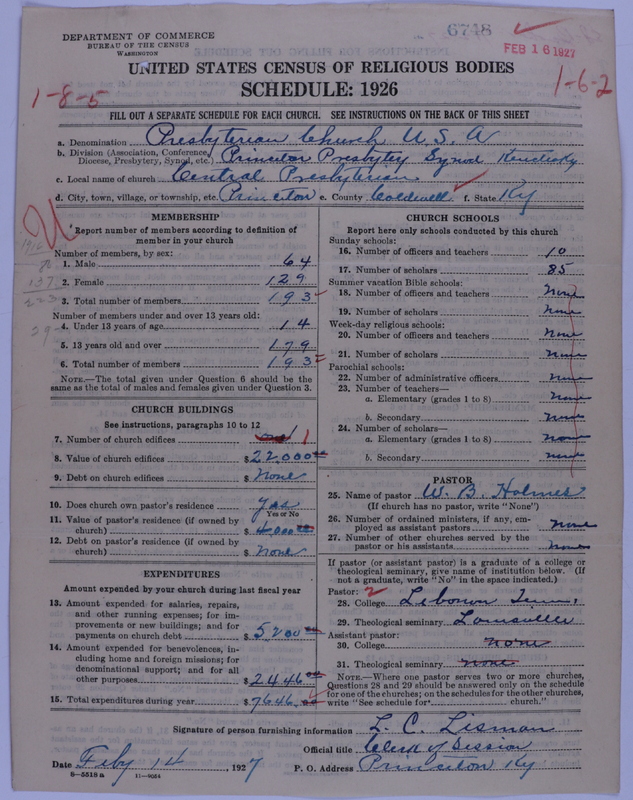 6748
FEB 16 1927
DEPARTMENT OF COMMERCE
BUREAU OF THE CENSUS
WASHINGTON
UNITED STATES CENSUS OF RELIGIOUS BODIES
SCHEDULE: 1926
1-8-5
1-6-2
FILL OUT A SEPARATE SCHEDULE FOR EACH CHURCH. SEE INSTRUCTIONS ON THE BACK OF THIS SHEET
a. Denomination Presbyterian Church U.S.A
b. Division (Association, Conference, Diocese, Presbytery, Synod, etc.) Princeton Presbytery Synod Kentucky
c. Local name of church Central Presbyterian
d. City, town, village, or township, etc. Princeton e. County Coldwell f. State Ky
MEMBERSHIP
Report number of members according to definition of member in your church
Number of members, by sex:
1. Male 64
2. Female 129
3. Total number of members 193
Number of members under and over 13 years old:
4. Under 13 years of age 14
5. 13 years old and over 179
6. Total number of members 193
NOTE.—The total given under Question 6 should be the same as the total of males and females given under Question 3.
CHURCH BUILDINGS
See instructions, paragraphs 10 to 12
7. Number of church edifices one 1
8. Value of church edifices $ 22,000 00
9. Debt on church edifices $ None
10. Does church own pastor's residence Yes
Yes or No
11. Value of pastor's residence (if owned by church) $ 4,000 00
12. Debt on pastor's residence (if owned by church) $ None
EXPENDITURES
Amount expended by church during last fiscal year
13. Amount expended for salaries, repairs, and other running expenses; for improvements or new buildings; and for payments on church debt $ 5,200 00
14. Amount expended for benevolences, including home and foreign missions; for denominational support; and for all other purposes $ 2446 00
15. Total expenditures during year $ 7646 00
CHURCH SCHOOLS
Report here only schools conducted by this church
Sunday schools:
16. Number of officers and teachers 10
17. Number of scholars 85
Summer vacation Bible schools:
18. Number of officers and teachers None
19. Number of scholars None
Week-day religious schools:
20. Number of officers and teachers None
21. Number of scholars None
Parochial schools:
22. Number of administrative officers None
23. Number of teachers—
a. Elementary (grades 1 to 8) None
b. Secondary None
24. Number of scholars—
a. Elementary (grades 1 to 8) None
b. Secondary None
PASTOR
25. Name of pastor W. B. Holmes
(If church has no pastor, write "None")
26. Number of ordained ministers, if any, employed as assistant pastors None
27. Number of other churches served by the pastor or his assistants None
If pastor (or assistant pastor) is a graduate of a college or theological seminary, give name of institution below. (If not a graduate, write "No" in the space indicated.)
Pastor: 2
28. College
29. Theological seminary Louisville
Assistant pastor:
30. College None
31. Theological seminary None
NOTE.—Where one pastor serves two or more churches, Questions 28 and 29 should be answered only on the schedule for one of the churches; on the schedules for the other churches, write "See schedule for church."
Signature of person furnishing information L. C. Lisman
Official title Clerk of Session
Date Feby 14, 1927 P. O. Address Princeton Ky
8—5518 a 11—9064